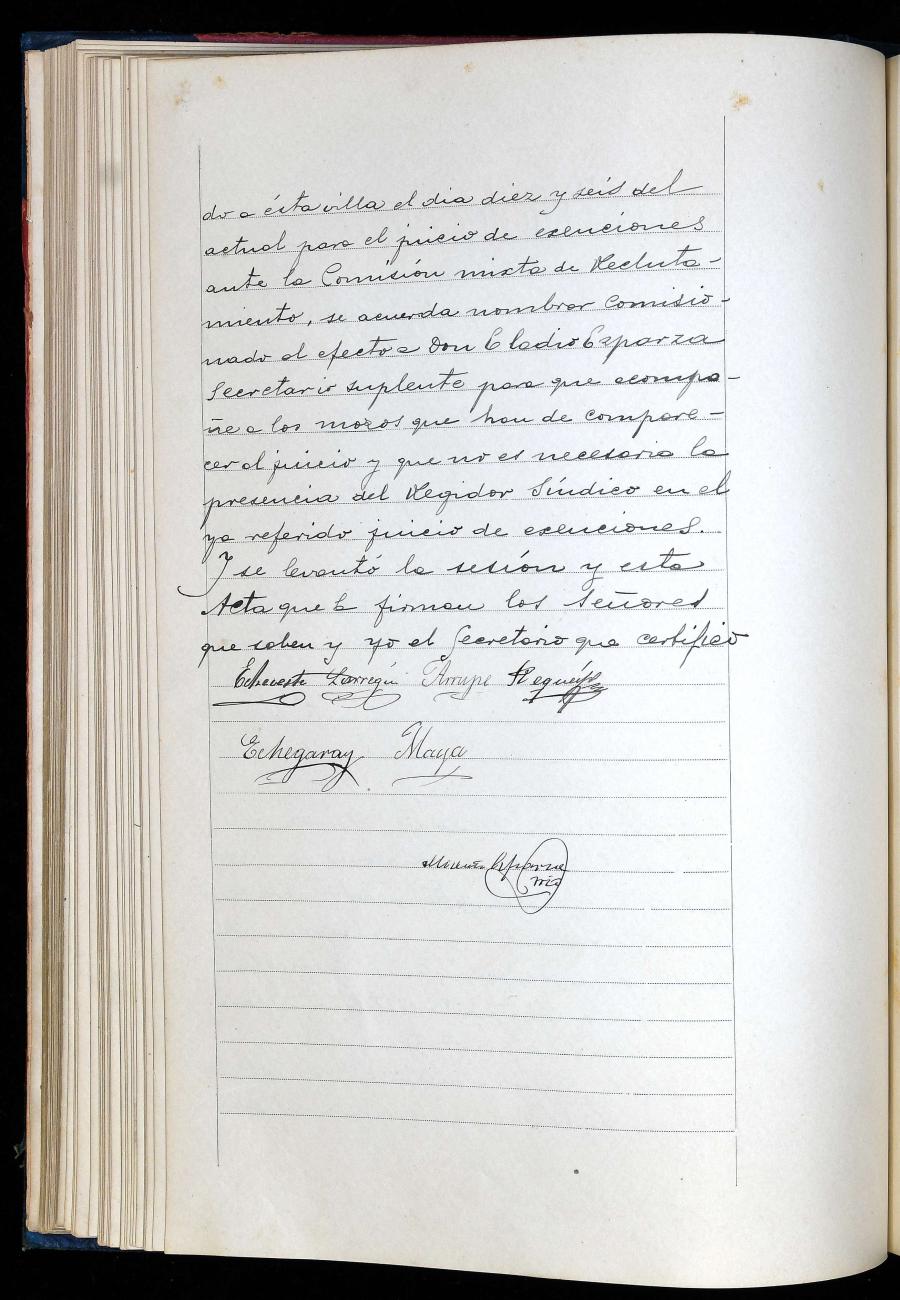 do a ésta villa el dia diez y seis del
actual para el juicio de exenciones
ante la Comisión mixta de Recluta-
miento, se acuerda nombrar comisio-
nado al efecto a Don Eladio Esparza
Secretario suplente para que acompa-
ñe a los mozos que han de compare-
cer al juicio y que no es necesaria la
presencia del Regidor Síndico en el
ya referido juicio de exenciones.
Y se levantó la sesión y esta
Acta que la firman los Señores
que saben y yo el Secretario que certifico
Echeveste Larregui Arrupe
Echegaray Maya
Esparza